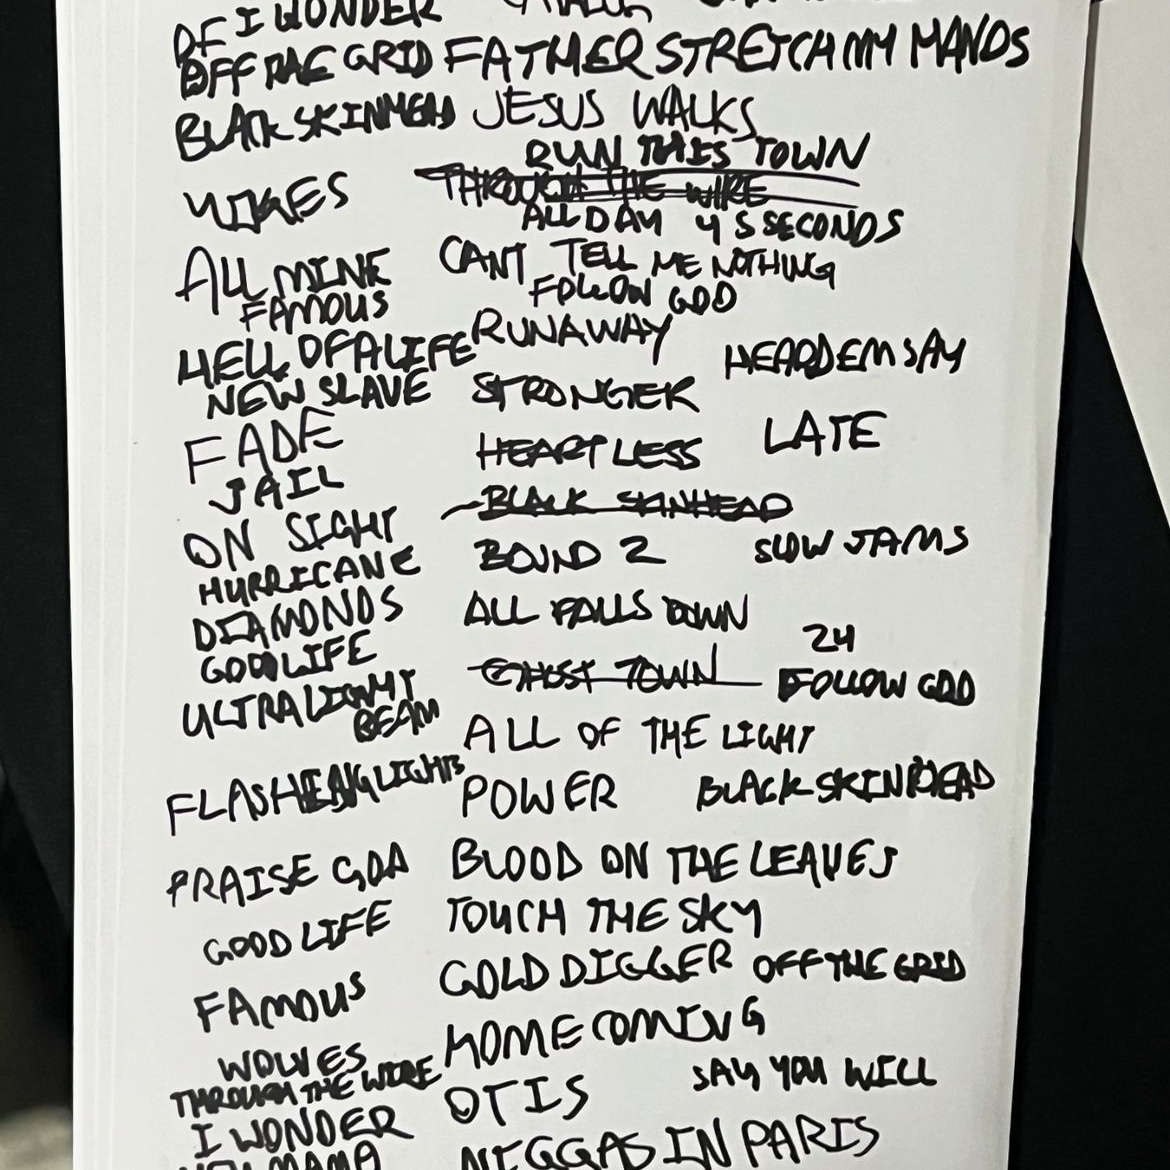 OF I WONDER
OFF THE GRID FATHER STRETCH MY HANDS
BLACKSKINHEAD JESUS WALKS
RUN THIS TOWN
YIKES THROUGH THE WIRE
ALL DAY 4 5 SECONDS
ALL MINE CANT TELL ME NOTHING
FAMOUS FOLLOW GOD
HELL OF A LIFE RUNAWAY HEARD EM SAY
NEW SLAVE STRONGER
FADE HEARTLESS LATE
JAIL BLACK SKINHEAD
ON SIGHT BOUND 2 SLOW JAMS
HURRICANE
DIAMONDS ALL FALLS DOWN 24
GOODLIFE GHOST TOWN FOLLOW GOD
ULTRALIGHT
BEAM ALL OF THE LIGHT
FLASHINGLIGHTS POWER BLACKSKINHEAD
PRAISE GOD BLOOD ON THE LEAVES
GOOD LIFE TOUCH THE SKY
GOLD DIGGER OFF THE GRID
FAMOUS HOMECOMING
WOLVES SAY YOU WILL
THROUGH THE WIRE OTIS
I WONDER NIGGAS IN PARIS
MAMA